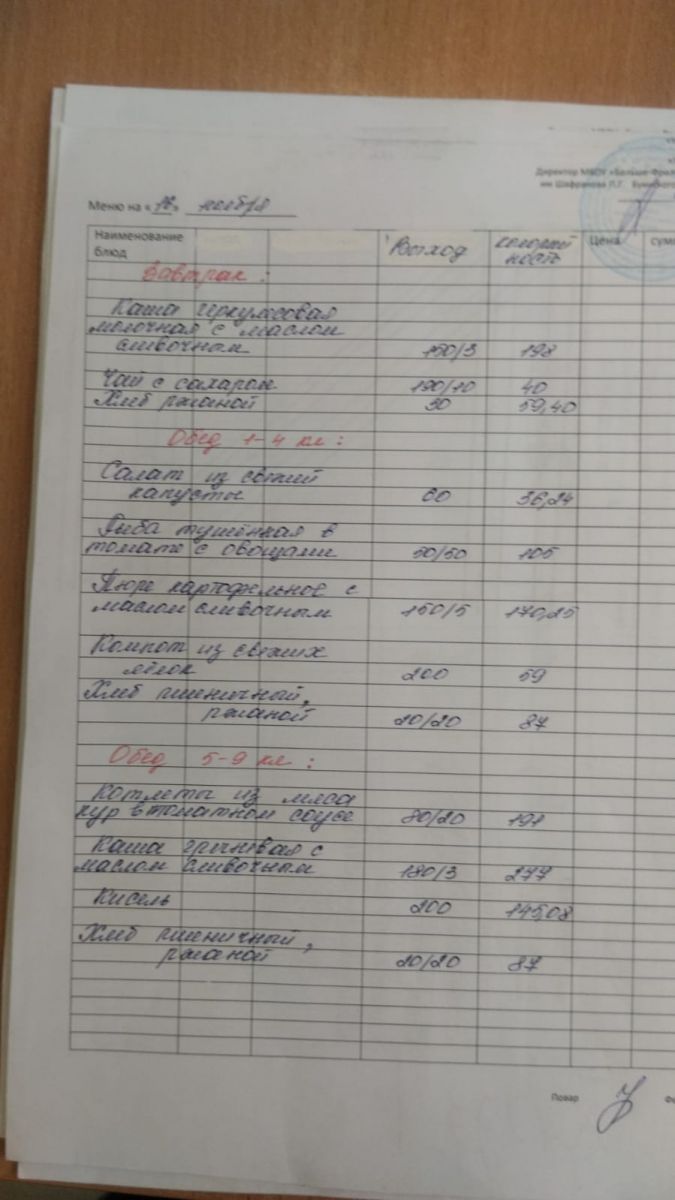 Директор МБОУ «Больше-Фрол
им Шафранова П.Г. Буинского
Меню на « » ноября
Наименование блюд Выход калорий ность Цена сумм
Завтрак :
Каша геркулесовая
молочная с маслом
сливочным 150/3 198
Чай с сахаром 190/10 40
Хлеб ржаной 30 59,40
Обед 1-4 кл :
Салат из свежий
капусты 60 36,24
Рыба тушённая в
томате с овощами 50/50 105
Пюре картофельное с
маслом сливочным 150/5 170,25
Компот из свежих
яблок 200 59
Хлеб пшеничный,
ржаной 20/20 87
Обед 5-9 кл :
Котлеты из мяса
кур в томатном соусе 80/20 191
Каша гречневая с
маслом сливочным 180/3 277
Кисель 200 145,08
Хлеб пшеничный,
ржаной 20/20 87
Повар